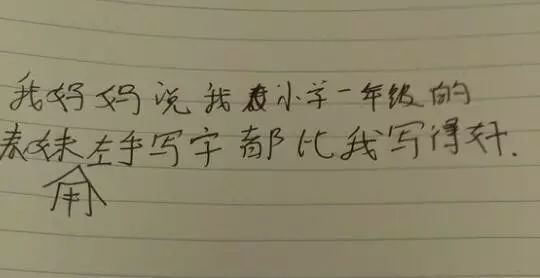 我妈妈说我小学一年级的
表妹左手写字都比我写得好.
用